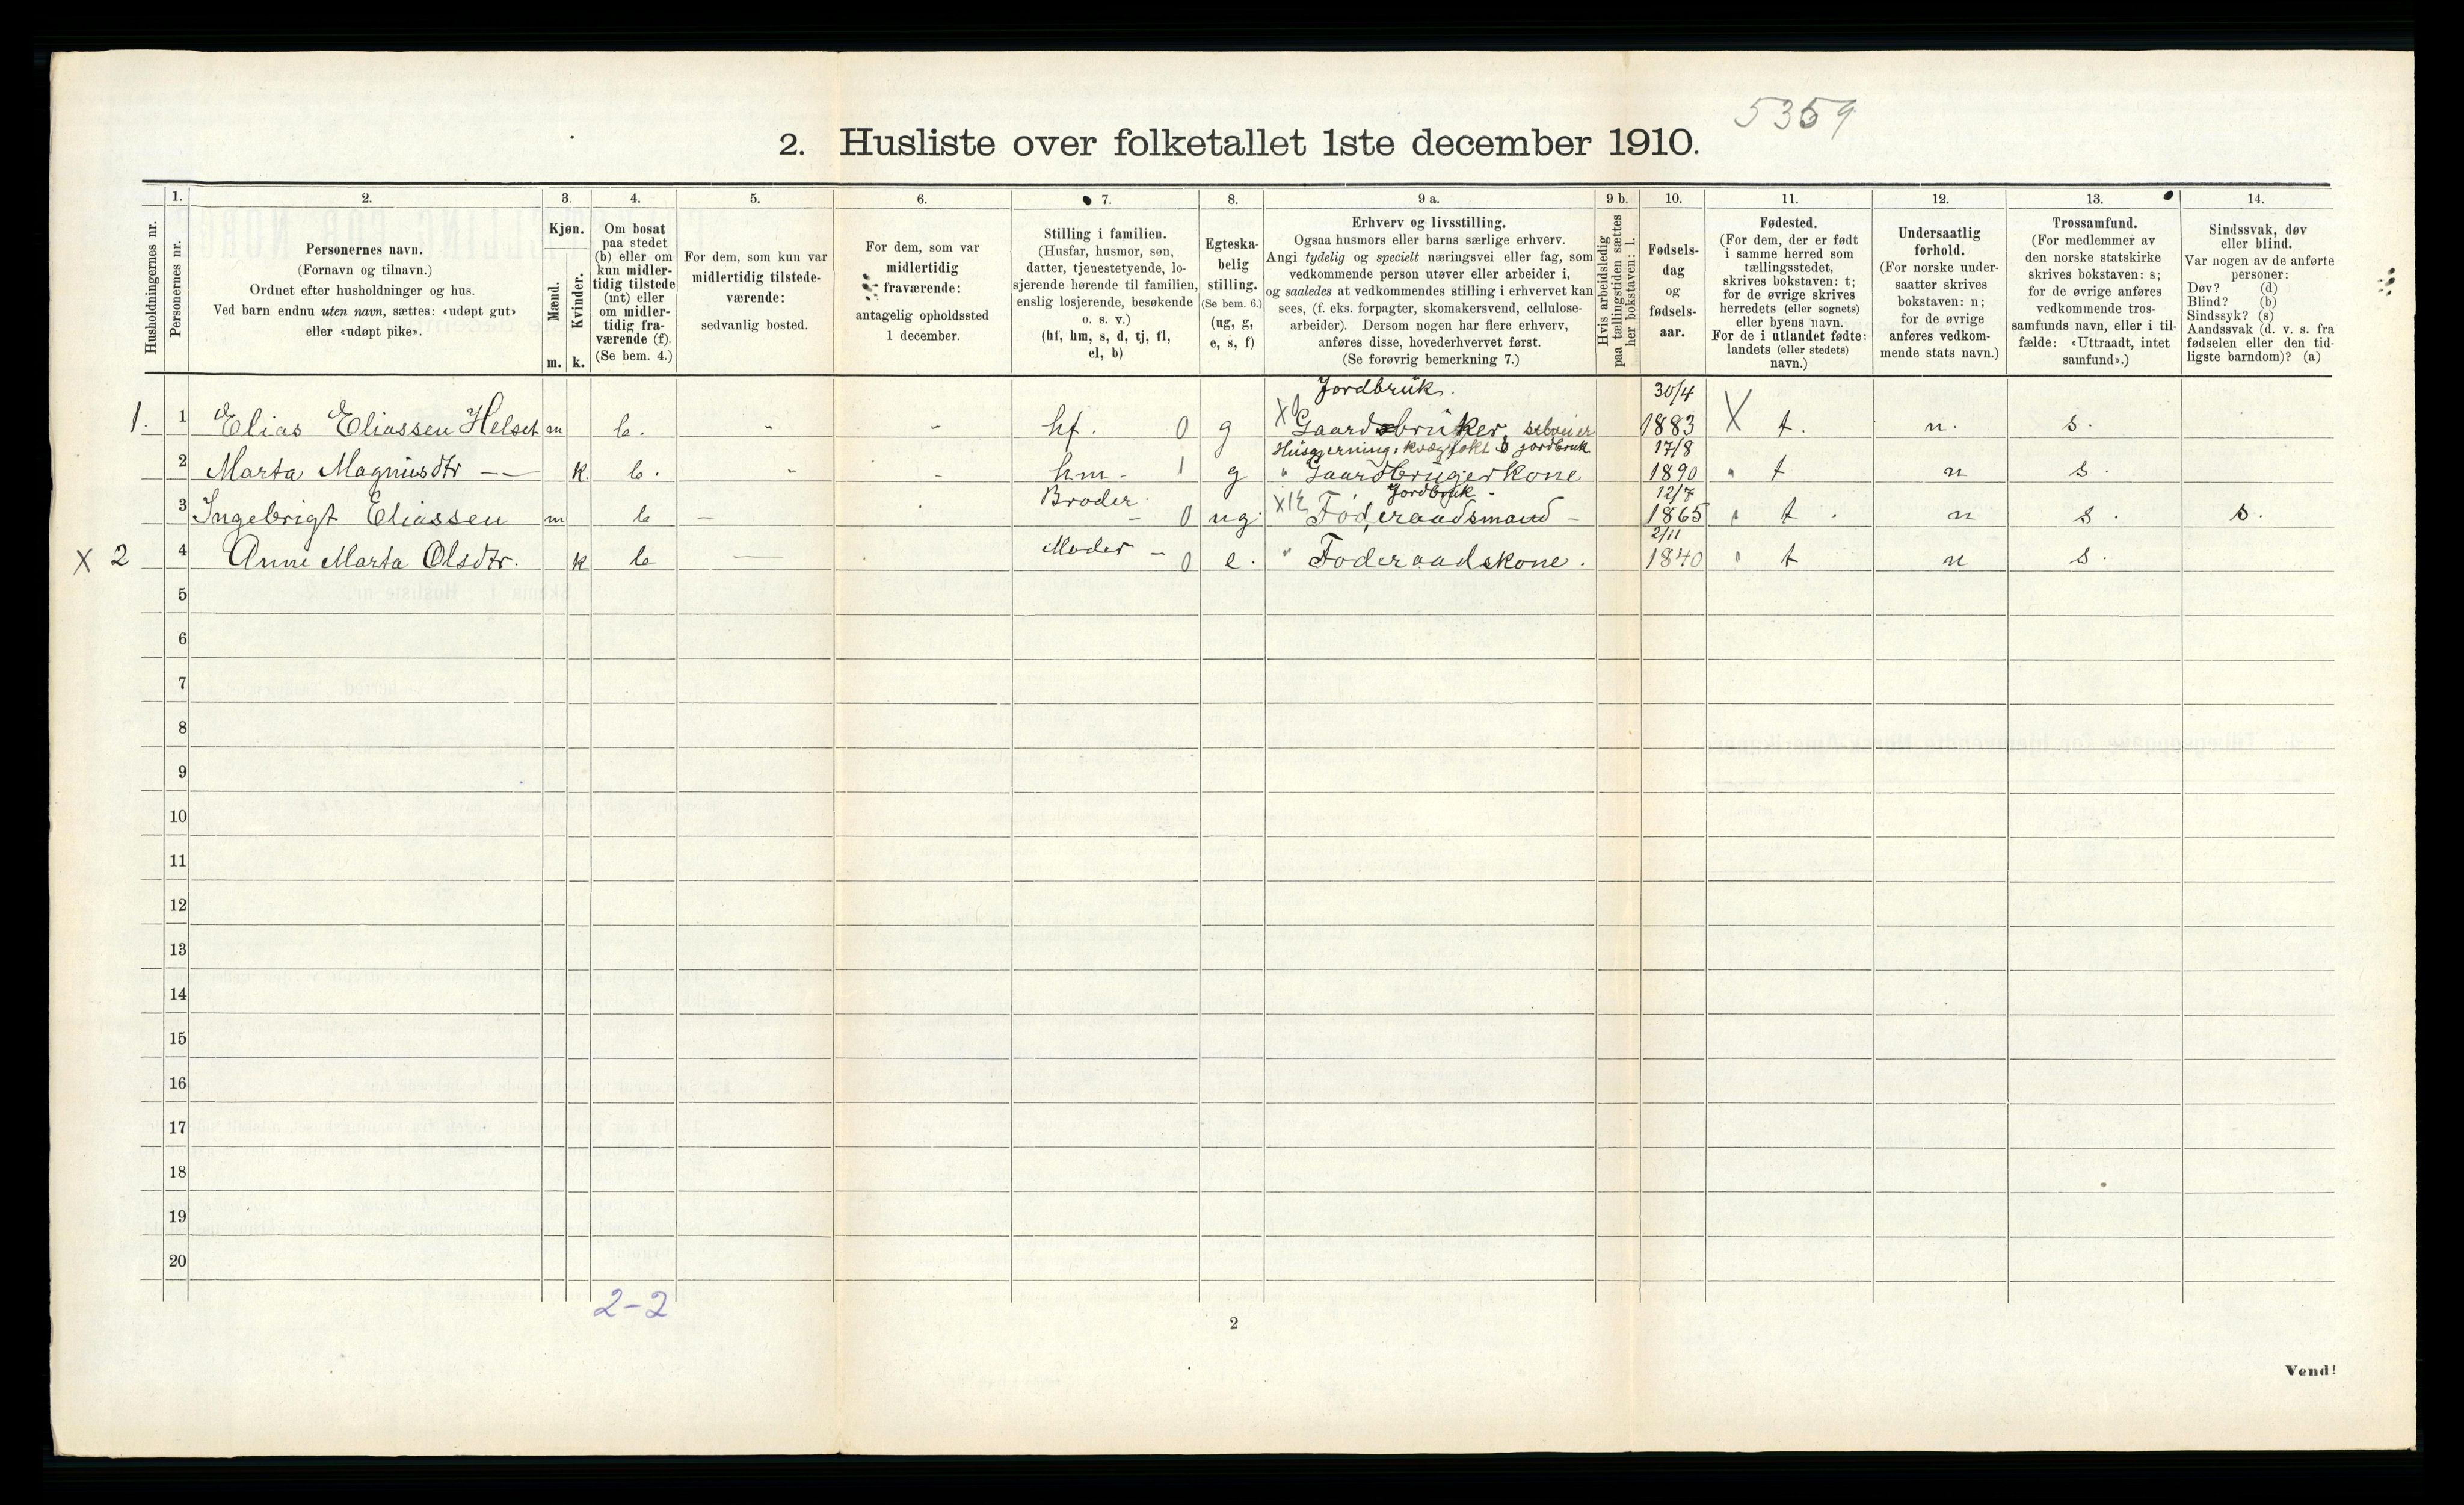 5359
2. Husliste over folketallet 1ste december 1910.
Husholdningernes nr.
1.
Personernes nr.
2.
Personernes navn.
(Fornavn og tilnavn.)
Ordnet efter husholdninger og hus.
Ved barn endnu uten navn, sættes: «udøpt gut»
eller «udøpt pike».
3.
Kjøn.
Mænd.
Kvinder.
m. k.
4.
Om bosat
paa stedet
(b) eller om
kun midler-
tidig tilstede
(mt) eller
om midler-
tidig fra-
værende (f).
(Se bem. 4.)
5.
For dem, som kun var
midlertidig tilstede-
værende:
sedvanlig bosted.
6.
For dem, som var
midlertidig
fraværende:
antagelig opholdssted
1 december.
7.
Stilling i familien.
(Husfar, husmor, søn,
datter, tjenestetyende, lo-
sjerende hørende til familien,
enslig losjerende, besøkende
o. s. v.)
(hf, hm, s, d, tj, fl,
el, b)
8.
Egteska-
belig
stilling.
(Se bem. 6.)
(ug, g,
e, s, f)
9 a.
Erhverv og livsstilling.
Ogsaa husmors eller barns særlige erhverv.
Angi tydelig og specielt næringsvei eller fag, som
vedkommende person utøver eller arbeider i,
og saaledes at vedkommendes stilling i erhvervet kan
sees, (f. eks. forpagter, skomakersvend, cellulose-
arbeider). Dersom nogen har flere erhverv,
anføres disse, hovederhvervet først.
(Se forøvrig bemerkning 7.)
9 b.
Hvis arbeidsledig
paa tællingstiden sættes
her bokstaven: l.
10.
Fødsels-
dag
og
fødsels-
aar.
11.
Fødested.
(For dem, der er født
i samme herred som
tællingsstedet,
skrives bokstaven: t;
for de øvrige skrives
herredets (eller sognets)
eller byens navn.
For de i utlandet fødte:
landets (eller stedets)
navn.)
12.
Undersaatlig
forhold.
(For norske under-
saatter skrives
bokstaven: n;
for de øvrige
anføres vedkom-
mende stats navn.)
13.
Trossamfund.
(For medlemmer av
den norske statskirke
skrives bokstaven: s;
for de øvrige anføres
vedkommende tros-
samfunds navn, eller i til-
fælde: «Uttraadt, intet
samfund».)
14.
Sindssvak, døv
eller blind.
Var nogen av de anførte
personer:
Døv? (d)
Blind? (b)
Sindssyk? (s)
Aandssvak (d. v. s. fra
fødselen eller den tid-
ligste barndom)? (a)
Jordbruk. 30/4
1. 1 Elias Eliassen Helset m b. - - hf. 0 g Gaardbruker, selveier 1883 X t. n. s.
Husgjerning, kvægrøkt & jordbruk 17/8
2 Marta Magnusdtr — k b. - - hm - 1 g " Gaardbrugerkone 1890 " t n s.
Broder Jordbruk - 12/7
3 Ingebrigt Eliassen m b - 0 ug. Föderaadsmand - 1865 " t. n s. s.
Moder 2/11
X 2 4 Anne Marta Olsdtr. k b — 0 e. " Föderaadskone. 1840 " t n s.
5
6
7
8
9
10
11
12
13
14
15
16
17
18
19
20
2-2
2
Vend!